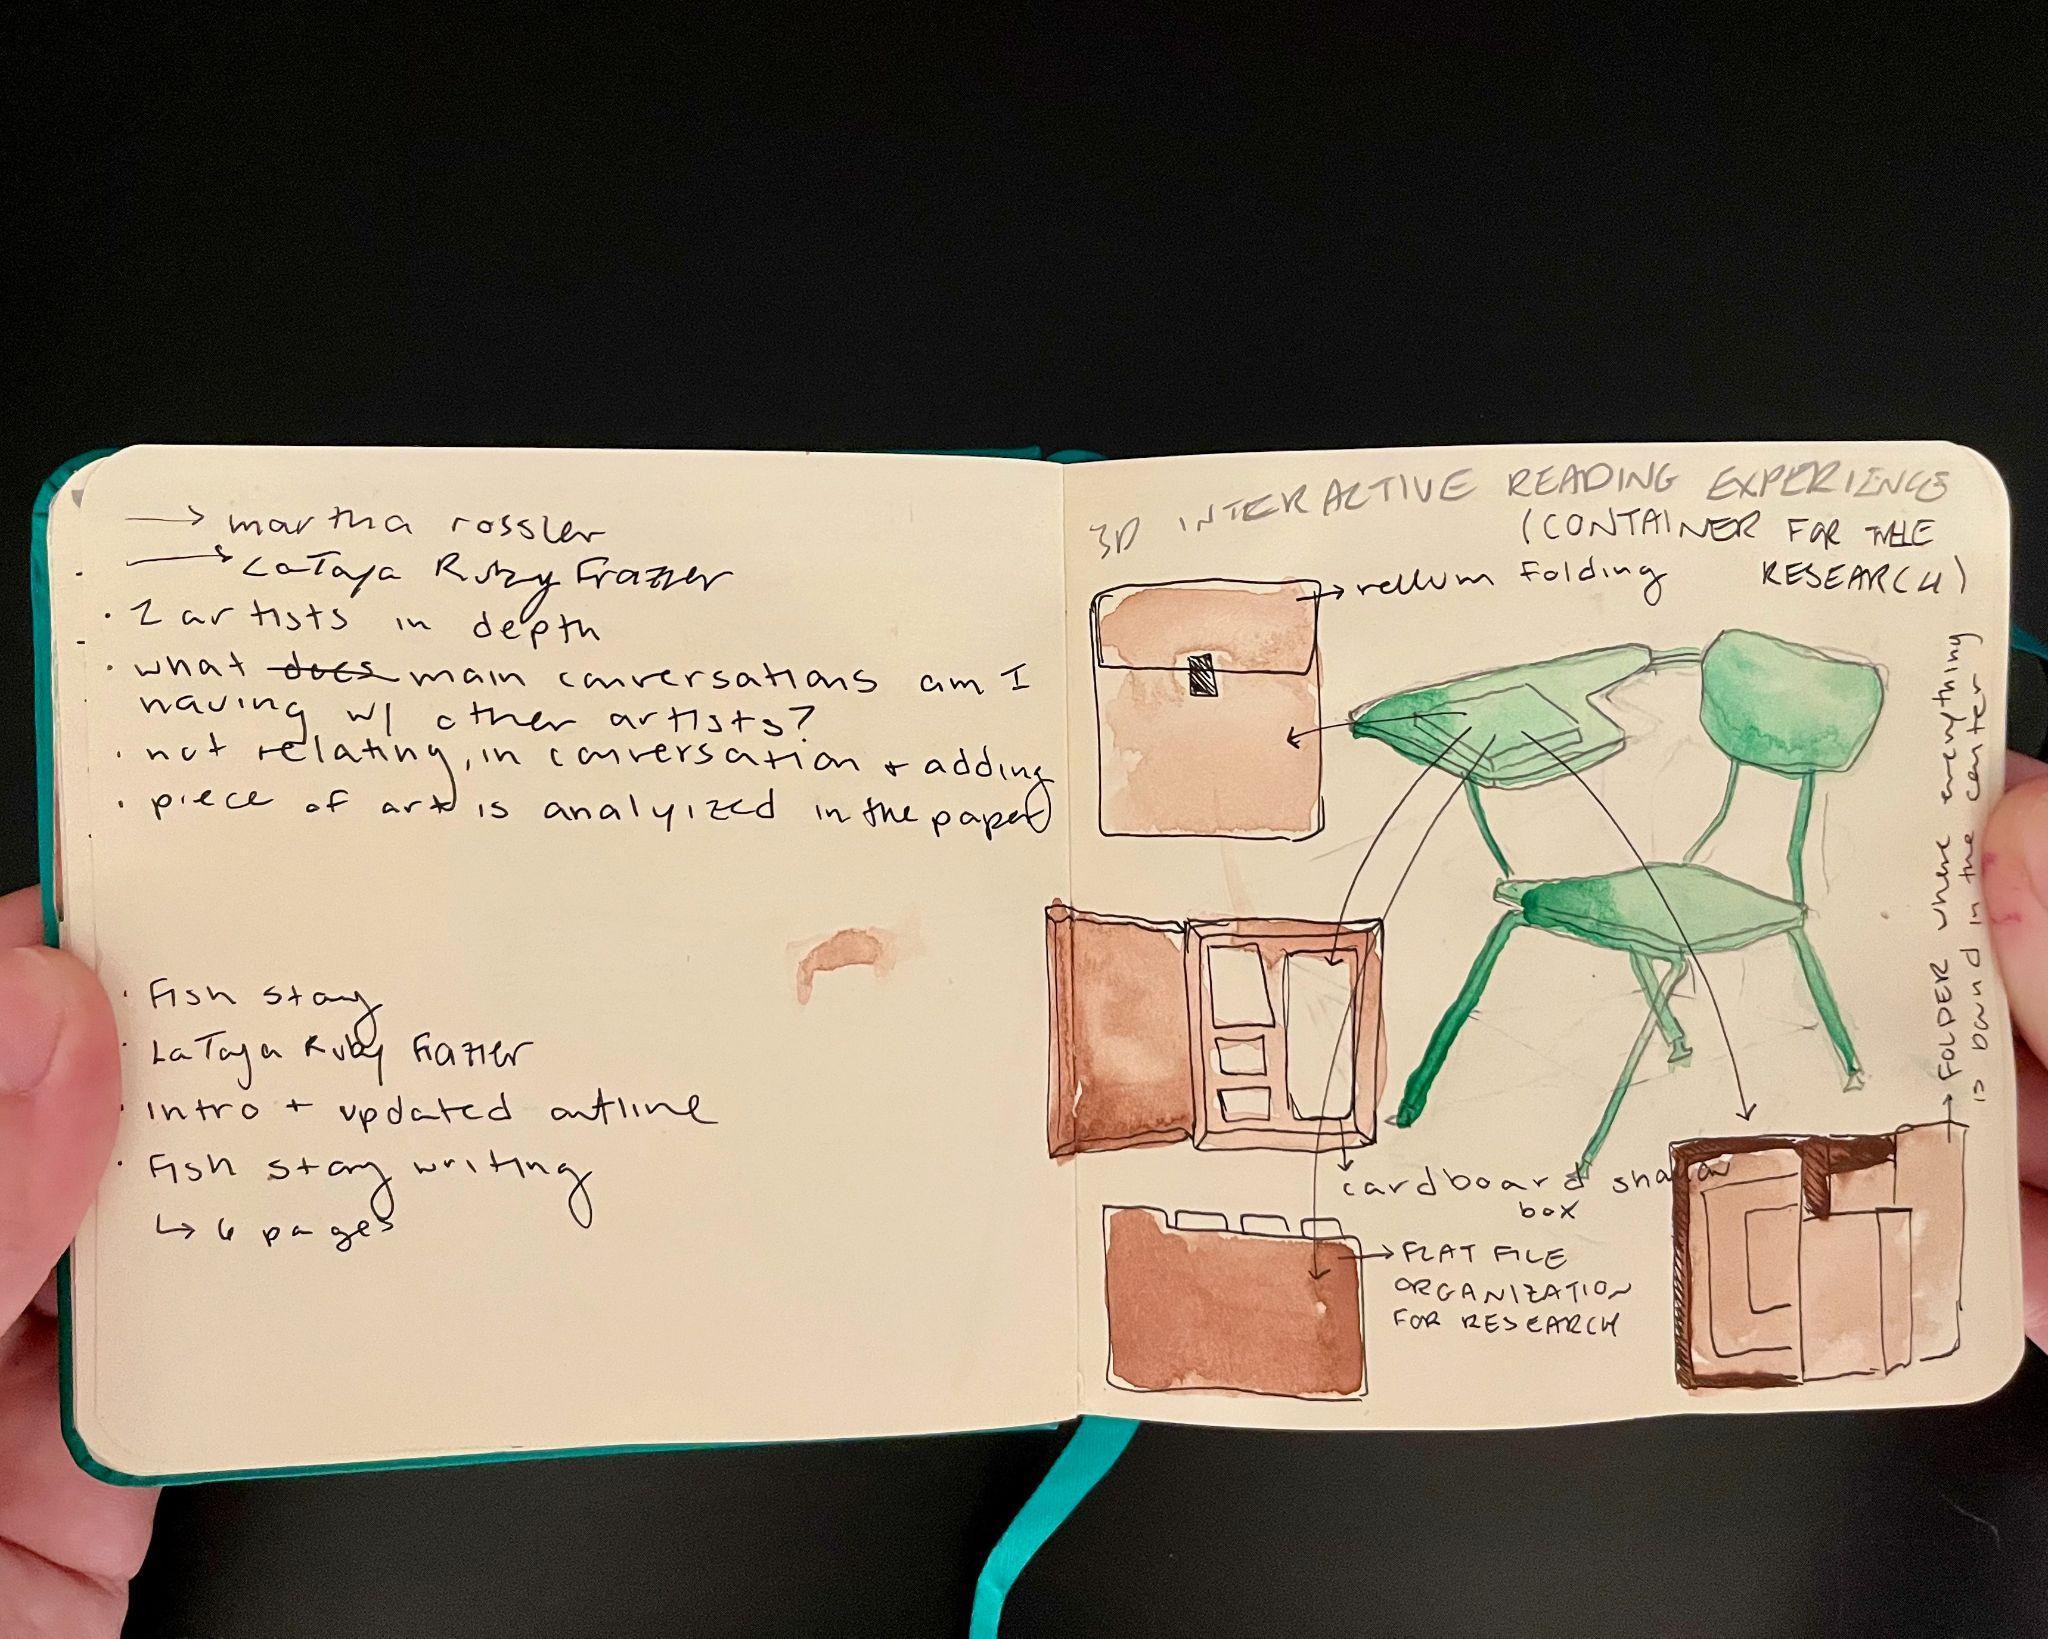 → martha rossler
→ LaToya Ruby Frazier
· 2 artists in depth
· what does main conversations am I
having w/ other artists?
· not relating, in conversation + adding
· piece of art is analyized in the paper
· Fish story
· LaToya Ruby Frazier
· intro + updated outline
· Fish story writing
↳ 6 pages
3D INTERACTIVE READING EXPERIENCE
(CONTAINER FOR THE
RESEARCH)
→ vellum folding
→ FOLDER where everything
is bound in the center
cardboard shadow
box
→ FLAT FILE
ORGANIZATION
FOR RESEARCH